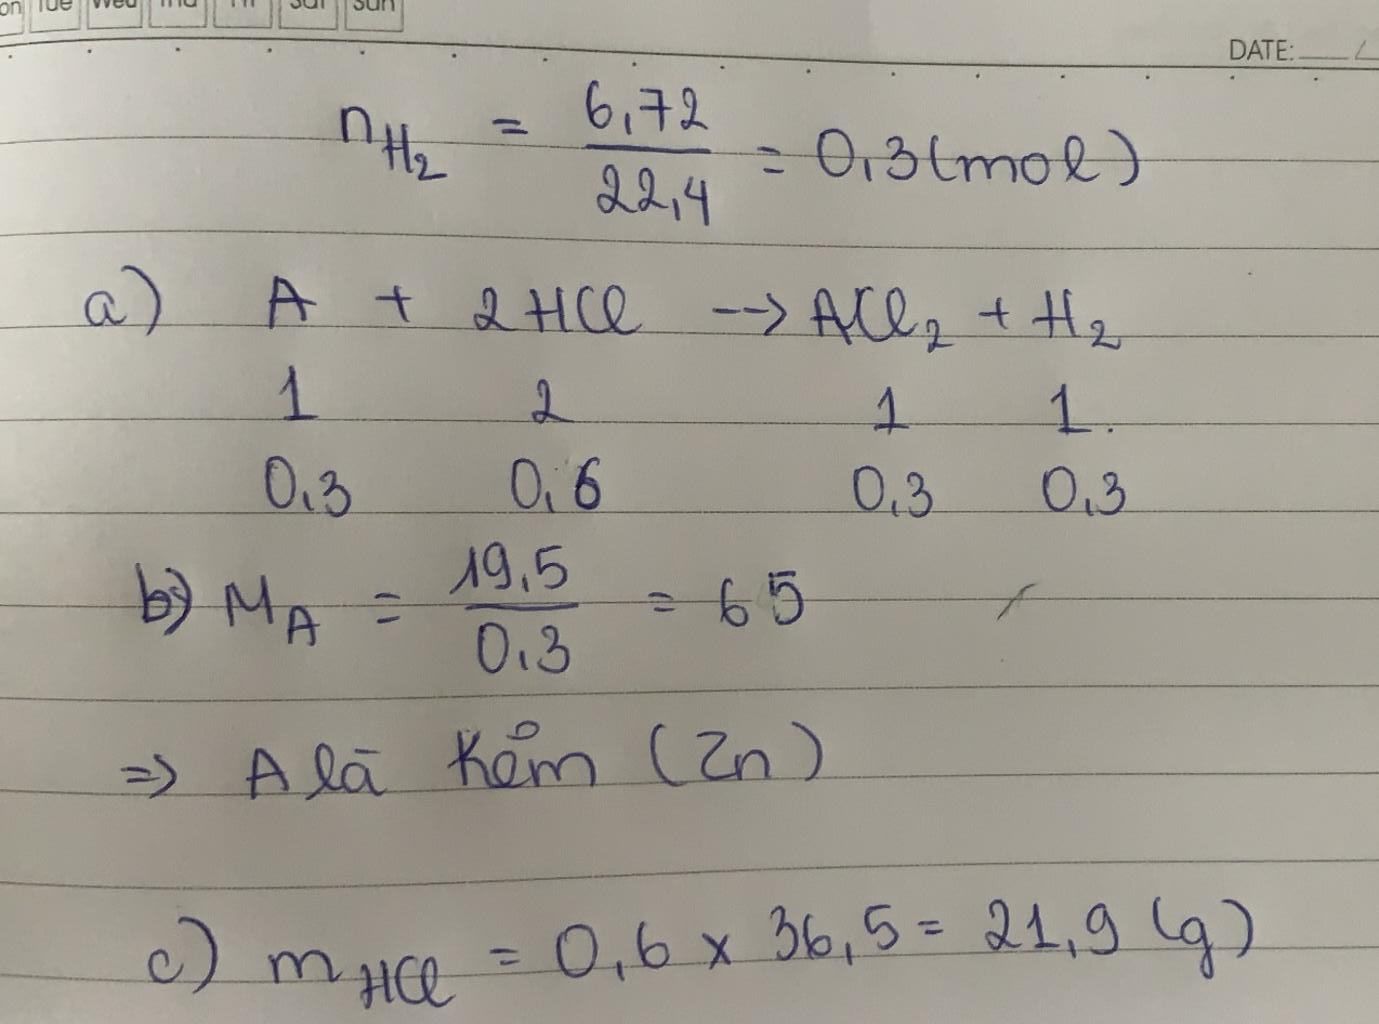 on Tue Wed Thu Fri Sat Sun
DATE:
n_H₂ = 6,72 / 22,4 = 0,3 (mol)
a) A + 2HCl --> ACl₂ + H₂
1 2 1 1.
0,3 0,6 0,3 0,3
b) M_A = 19,5 / 0,3 = 65
=> A là Kẽm (Zn)
c) m_HCl = 0,6 x 36,5 = 21,9 (g)